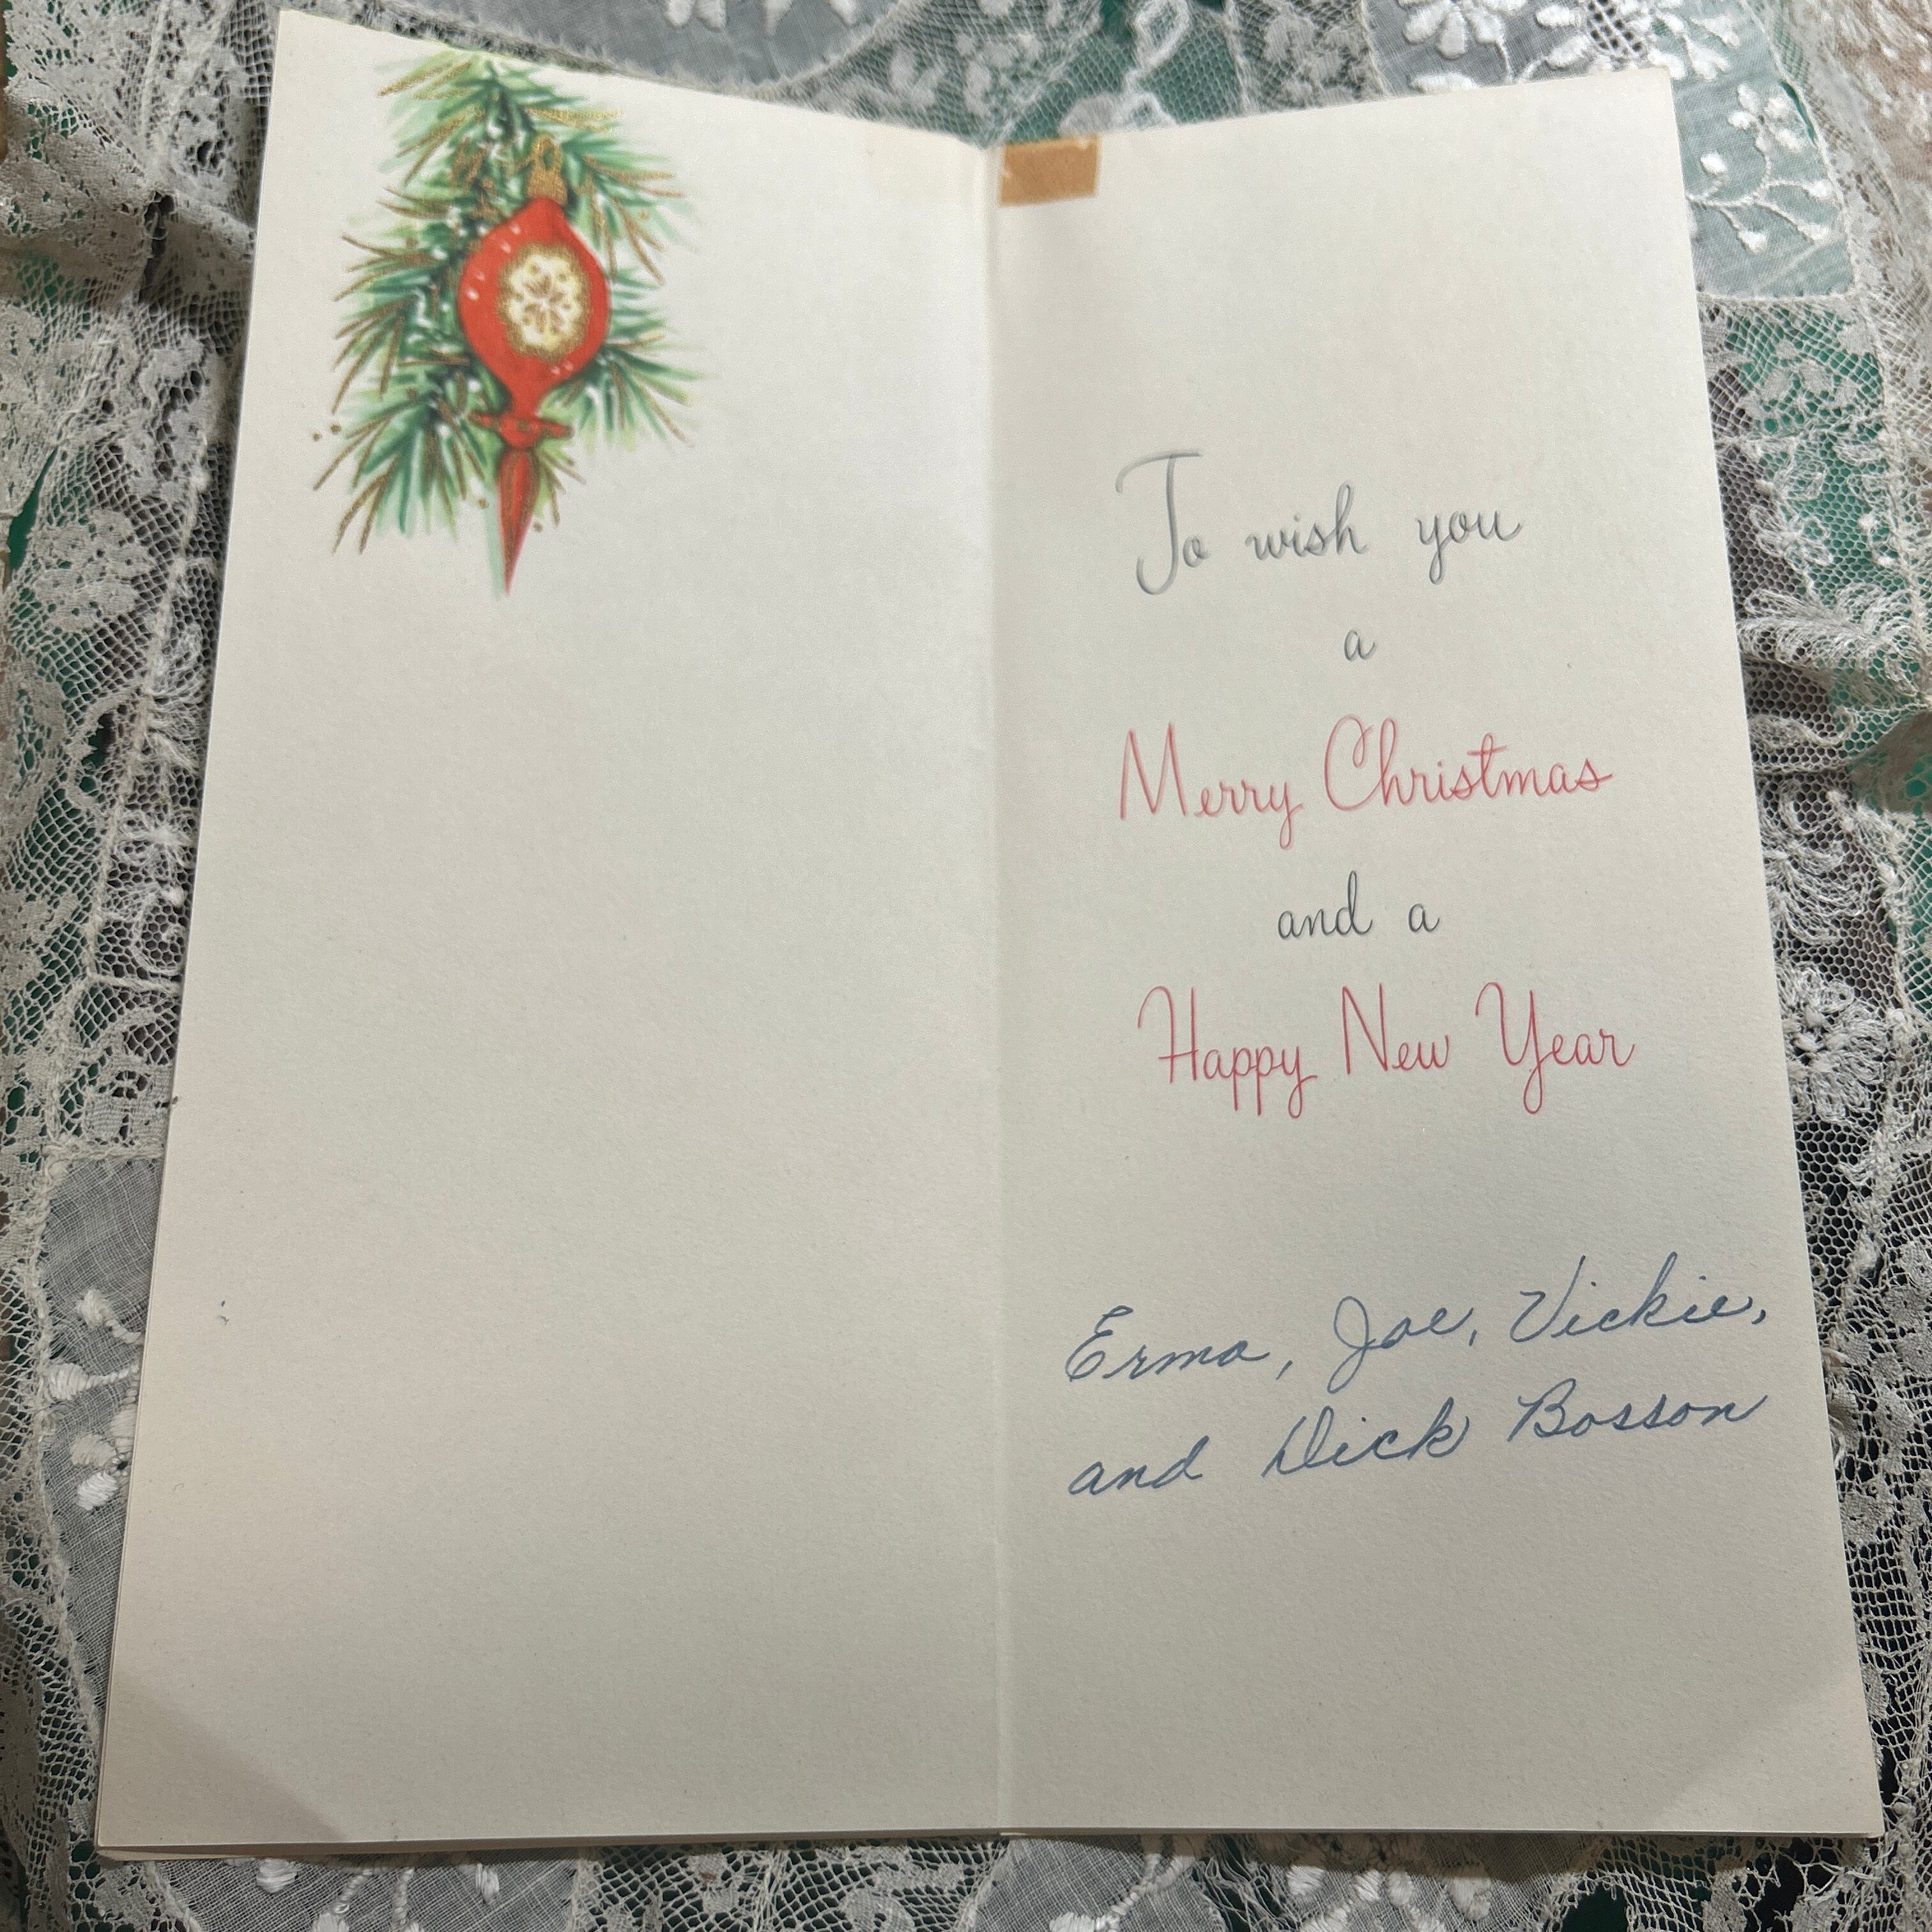 To wish you
a
Merry Christmas
and a
Happy New Year
Erma, Joe, Vickie,
and Dick Bosson